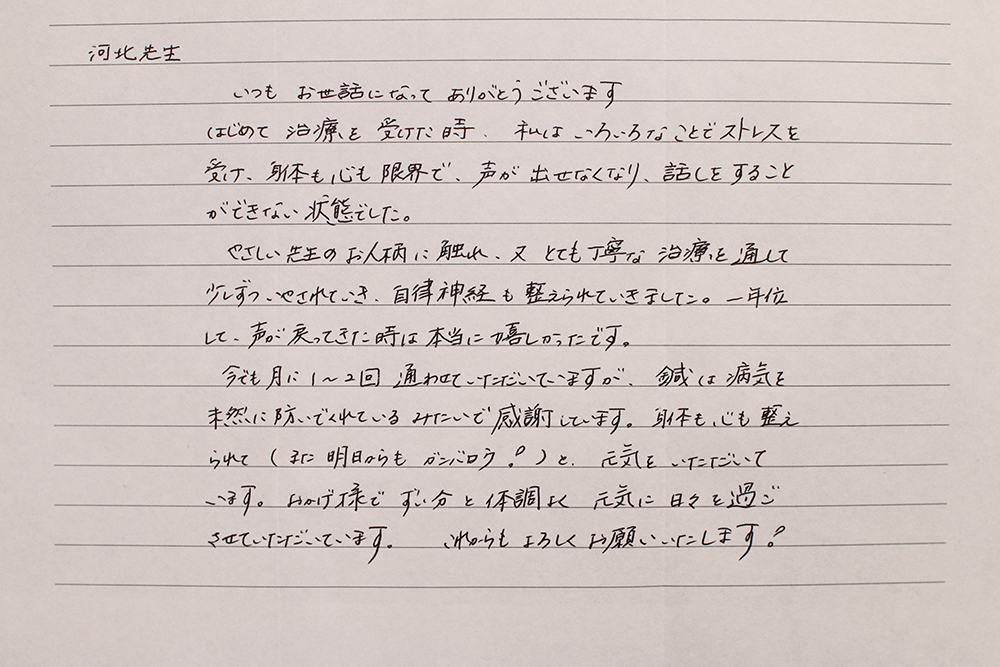 河北先生
いつも お世話になって ありがとうございます
はじめて 治療を 受けた時、私は いろいろなことでストレスを
受け、身体も心も 限界で、声が 出せなくなり、話しをすること
ができない 状態でした。
やさしい先生の お人柄に触れ、又 とても丁寧な 治療を通して
少しずつ いやされていき、自律神経も 整えられていきました。一年位
して、声が戻ってきた時は 本当に嬉しかったです。
今でも月に 1〜2回 通わせていただいていますが、鍼は 病気を
未然に防いでくれている みたいで 感謝しています。身体も、心も 整え
られて (また 明日からも ガンバロウ!)と、元気を いただいて
います。おかげ様で ずい分と 体調よく 元気に 日々を過ご
させていただいています。 これからも よろしく お願いいたします!